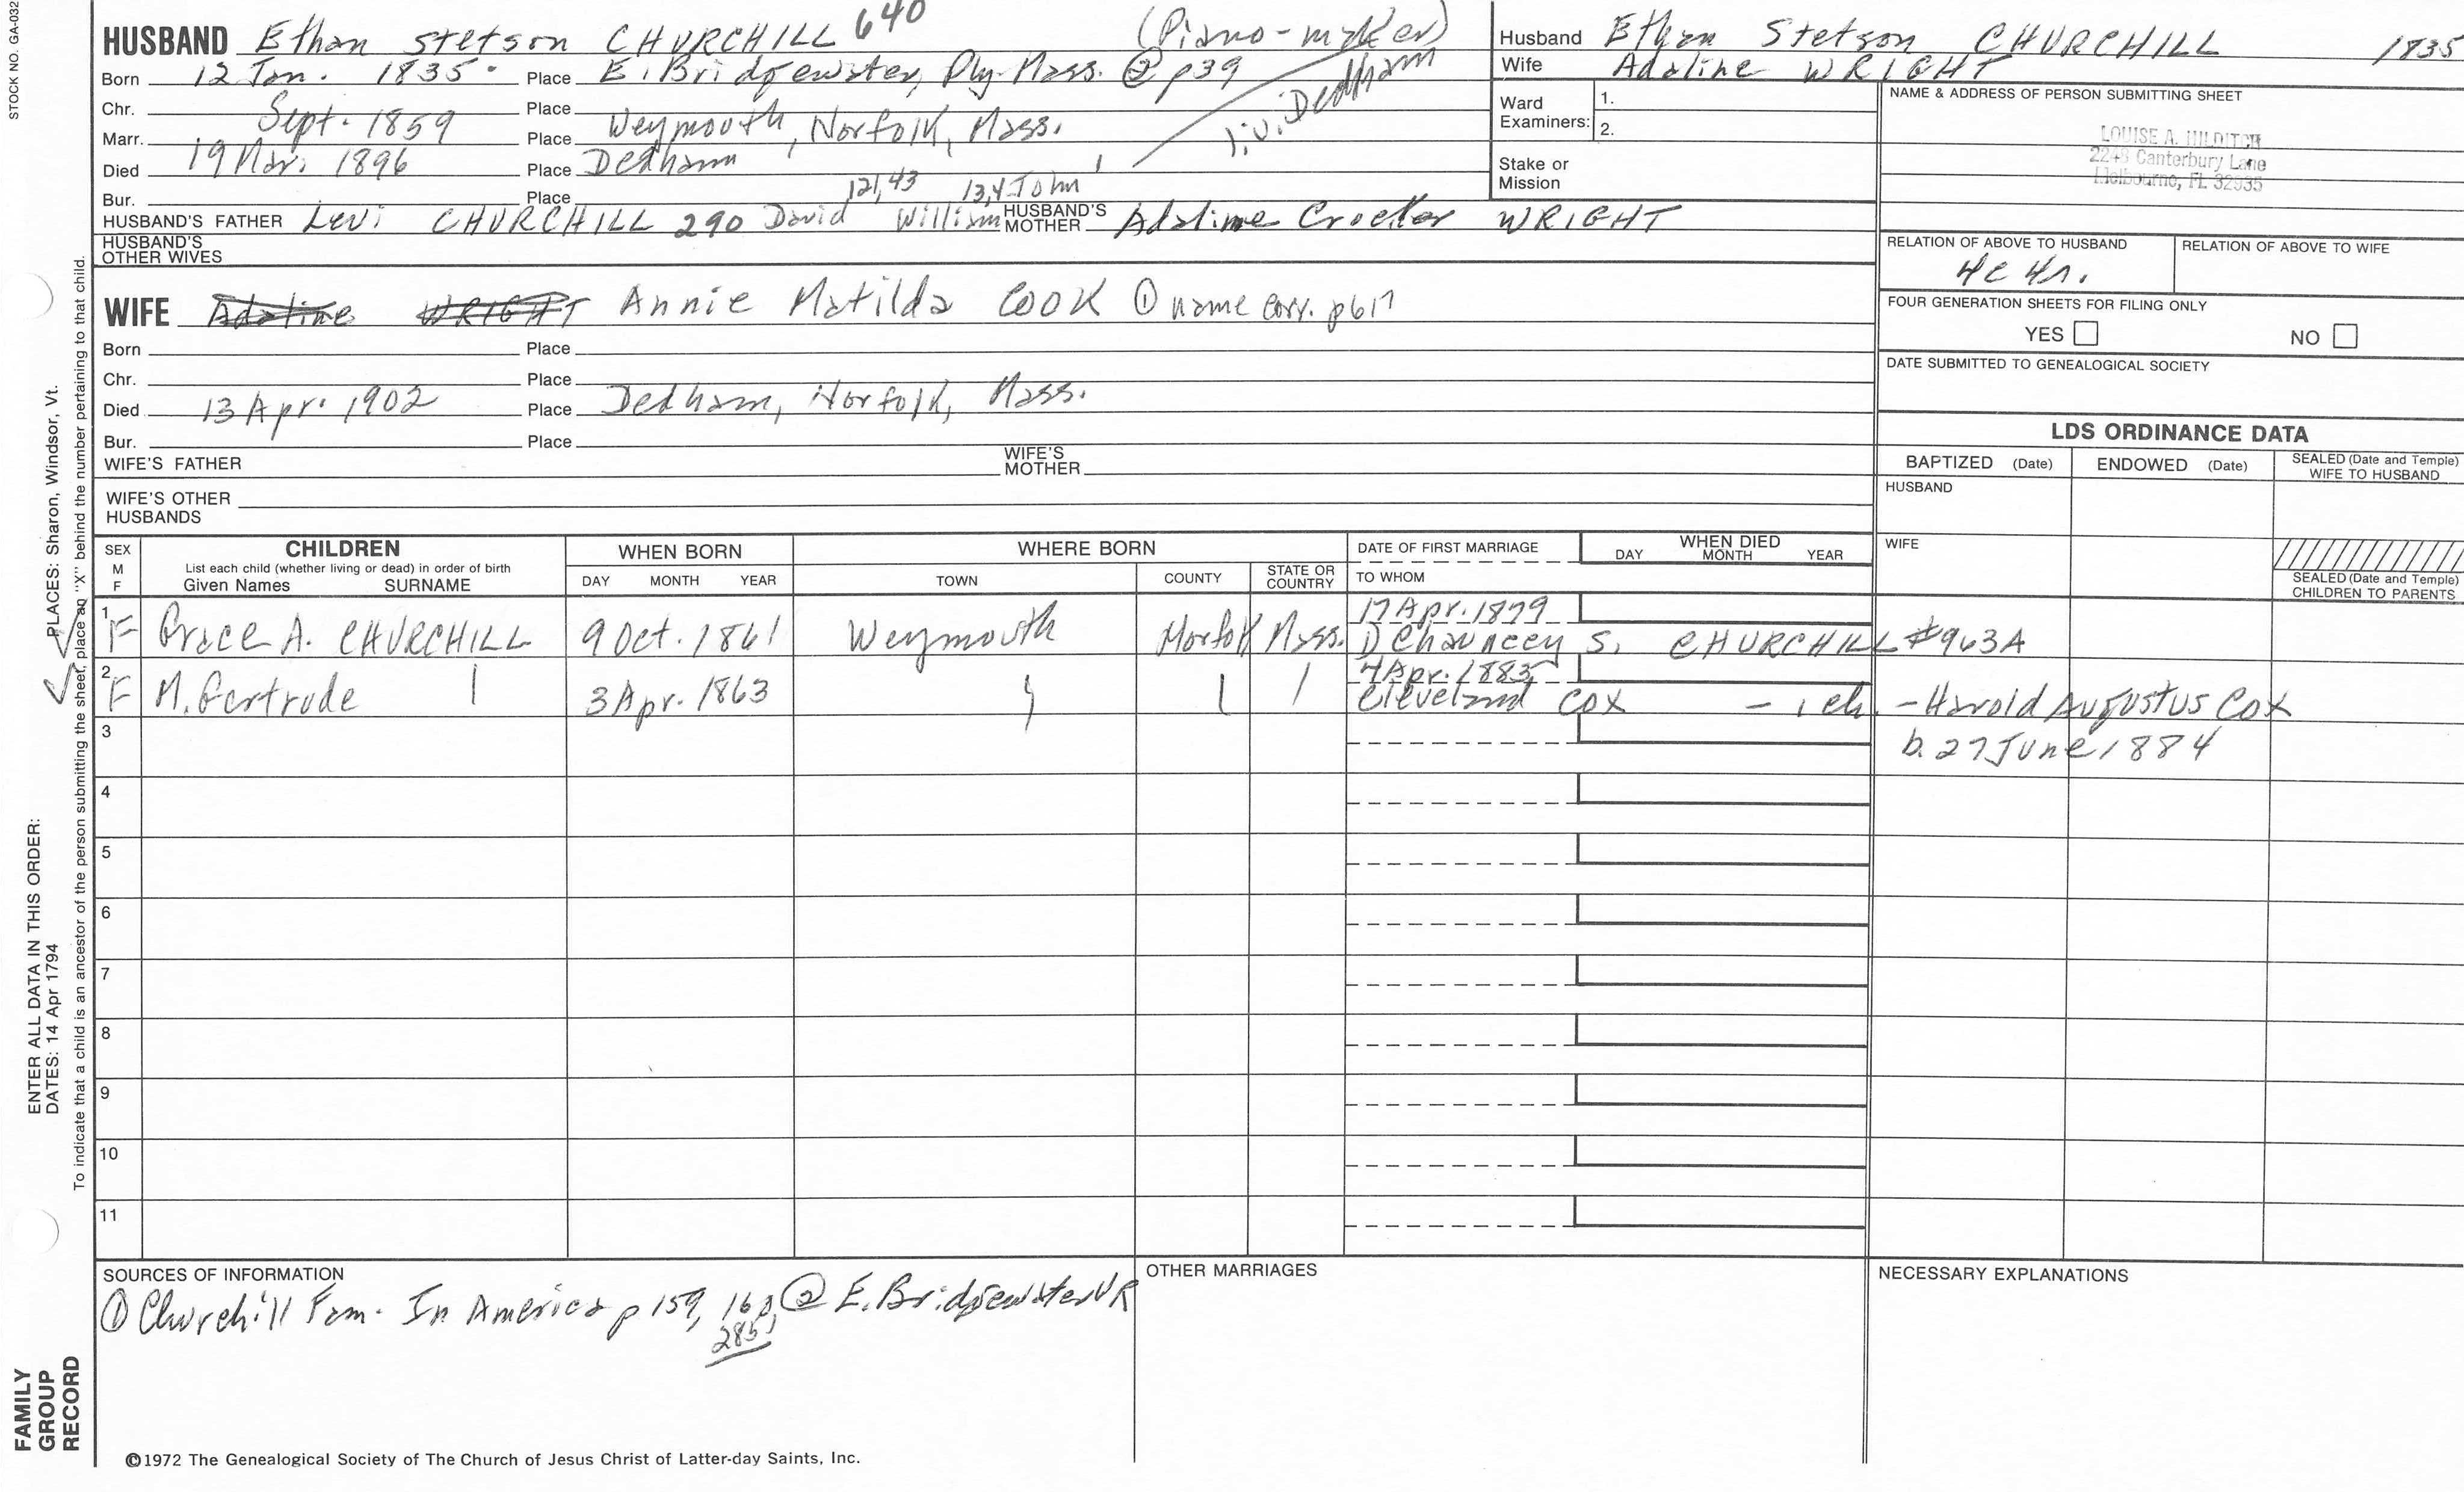 STOCK NO. GA-032
HUSBAND Ethan Stetson CHURCHILL 640 (Piano-maker)
Born 12 Jan. 1835 Place E. Bridgewater, Ply. Mass. ② p39
liv. Dedham
Chr. Place
Marr. Sept. 1859 Place Weymouth, Norfolk, Mass.
Died 19 Mar. 1896 Place Dedham
Bur. Place
121,43 13,4 John
HUSBAND'S FATHER Levi CHURCHILL 290 David William HUSBAND'S MOTHER Adaline Crocker WRIGHT
HUSBAND'S OTHER WIVES
WIFE Adaline WRIGHT Annie Matilda COOK ① name corr. p617
Born Place
Chr. Place
Died 13 Apr. 1902 Place Dedham, Norfolk, Mass.
Bur. Place
WIFE'S FATHER WIFE'S MOTHER
WIFE'S OTHER HUSBANDS
Husband Ethan Stetson CHURCHILL 1835
Wife Adaline WRIGHT
Ward Examiners: 1.
2.
Stake or Mission
NAME & ADDRESS OF PERSON SUBMITTING SHEET
LOUISE A. HILDITCH
2248 Canterbury Lane
Melbourne, FL 32935
RELATION OF ABOVE TO HUSBAND RELATION OF ABOVE TO WIFE
4c 4r.
FOUR GENERATION SHEETS FOR FILING ONLY
YES NO
DATE SUBMITTED TO GENEALOGICAL SOCIETY
LDS ORDINANCE DATA
BAPTIZED (Date) ENDOWED (Date) SEALED (Date and Temple) WIFE TO HUSBAND
HUSBAND
WIFE
SEALED (Date and Temple) CHILDREN TO PARENTS
SEX M F
CHILDREN
List each child (whether living or dead) in order of birth
Given Names SURNAME
WHEN BORN
DAY MONTH YEAR
WHERE BORN
TOWN COUNTY STATE OR COUNTRY
DATE OF FIRST MARRIAGE
TO WHOM
WHEN DIED
DAY MONTH YEAR
17 Apr. 1879
1 F Grace A. CHURCHILL 9 Oct. 1861 Weymouth Norfolk Mass. D Chauncey S. CHURCHILL #963A
4 Apr. 1883
2 F M. Gertrude 3 Apr. 1863 Cleveland COX - 1 ch. - Harold Augustus Cox
b. 27 June 1884
3
4
5
6
7
8
9
10
11
SOURCES OF INFORMATION
① Churchill Fam. In America p 159, 160, ② E. Bridgewater VR
285
OTHER MARRIAGES
NECESSARY EXPLANATIONS
©1972 The Genealogical Society of The Church of Jesus Christ of Latter-day Saints, Inc.
FAMILY GROUP RECORD
ENTER ALL DATA IN THIS ORDER:
DATES: 14 Apr 1794
PLACES: Sharon, Windsor, Vt.
To indicate that a child is an ancestor of the person submitting the sheet, place an "X" behind the number pertaining to that child.